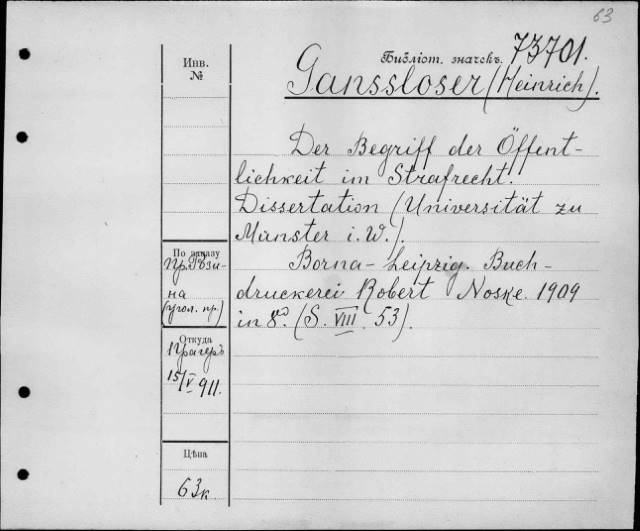 63
Инв.
№
Библіот. значекъ. 73701.
Ganssloser (Heinrich).
Der Begriff der Öffent-
lichkeit im Strafrecht.
Dissertation (Universität zu
Münster i. W.).
Borna-Leipzig. Buch-
druckerei Robert Noske. 1909
in 8º. (S. VIII. 53).
По заказу
на
(угол. пр.)
Откуда
Прагеръ
15/V 911.
Цѣна
63к.